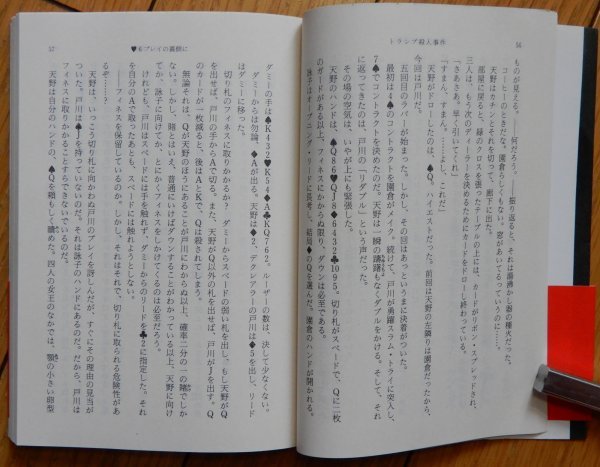 トランプ殺人事件
56
ものが見える。——何だろう。——振り返ると、湯沸かし器の種火だった。
コーヒーのときだな。園倉らしくもない。窓があいてるっていうのに……。
天野はカチンとそれを切って、廊下に出た。
部屋に戻ると、緑のクロスを張ったテーブルの上には、カードがリボン・スプレッドされ、
三人は、もう次のディーラーを決めるためにカードをドローし終わっている。
「さあさあ。早く引いてくれ」
「すまん、すまん。……よし、これだ」
天野がドローしたのは、♠Q。ハイエストだった。前回は天野の左隣りは園倉だったから、
今回は戸川だ。
五回目のラバーが始まった。しかし、その回はあっというまに決着がついた。
最初は4♠のコントラクトを園倉がメイク。続けて、戸川が勇躍スラム・トライに突入し、
7♠でコントラクトを決めたのだ。天野は一瞬の躊躇もなくダブルをかける。そして、それ
に返ってきたのは、戸川の「リダブル」という声だった。
その場の空気は、いやがうえにも緊張した。
天野のハンドは、♠Q86♥QJ8♦6432♣1095。切り札がスペードで、Qに二枚
のガードがある以上、フィネスにかからぬ限り、ダウンは必至である。
詠子はオープニング・リードに長考し、結局♦のQを選んだ。園倉のハンドが開かれる。
57
♥6 プレイの裏側に
ダミーの手は♠K432♥K54♦A♣KQ762。ルーザーの数は、決して少なくない。
ダミーからは勿論、♦Aが出る。天野は♦2、デクレアラーの戸川は♦5を出し、リード
はダミーに移った。
切り札のフィネスに取りかかるか？　ダミーからスペードの弱い札を出し、もし天野がQ
を出せば、戸川の手からAで切る。また、天野がQ以外の札を出せば、戸川がJを出す。Q
のカードが一枚減ると、後はAとKで、Qは殺されてしまう。
無論それは、Qが天野のほうにあることが戸川にわからぬ以上、確率二分の一の賭でしか
ない。しかし、賭とはいえ、普通にいけばダウンすることがわかっている以上、天野に向け
てか、詠子に向けてか、とにかくフィネスをしかけてくるのは必至だろう。
けれども、戸川はスペードには手を触れず、ダミーからのリードを♣2に指定した。それ
を自分のAで取ったあとも、スペードには触れようとしない。
——フィネスを保留しているのか。しかし、それはそれで、切り札に取られる危険性があ
るぞ……？
天野は、いっこう切り札に向かわぬ戸川のプレイを訝しんだが、すぐにその理由の見当が
ついた。戸川は♠Jを持っていないのだ。それは詠子のハンドにあるのだ。だから、戸川は
フィネスに取りかかることすらできないでいるのだ。
天野は自分のハンドの、♠Qを頼もしく眺めた。四人の女王のなかでは、顎の小さい卵型